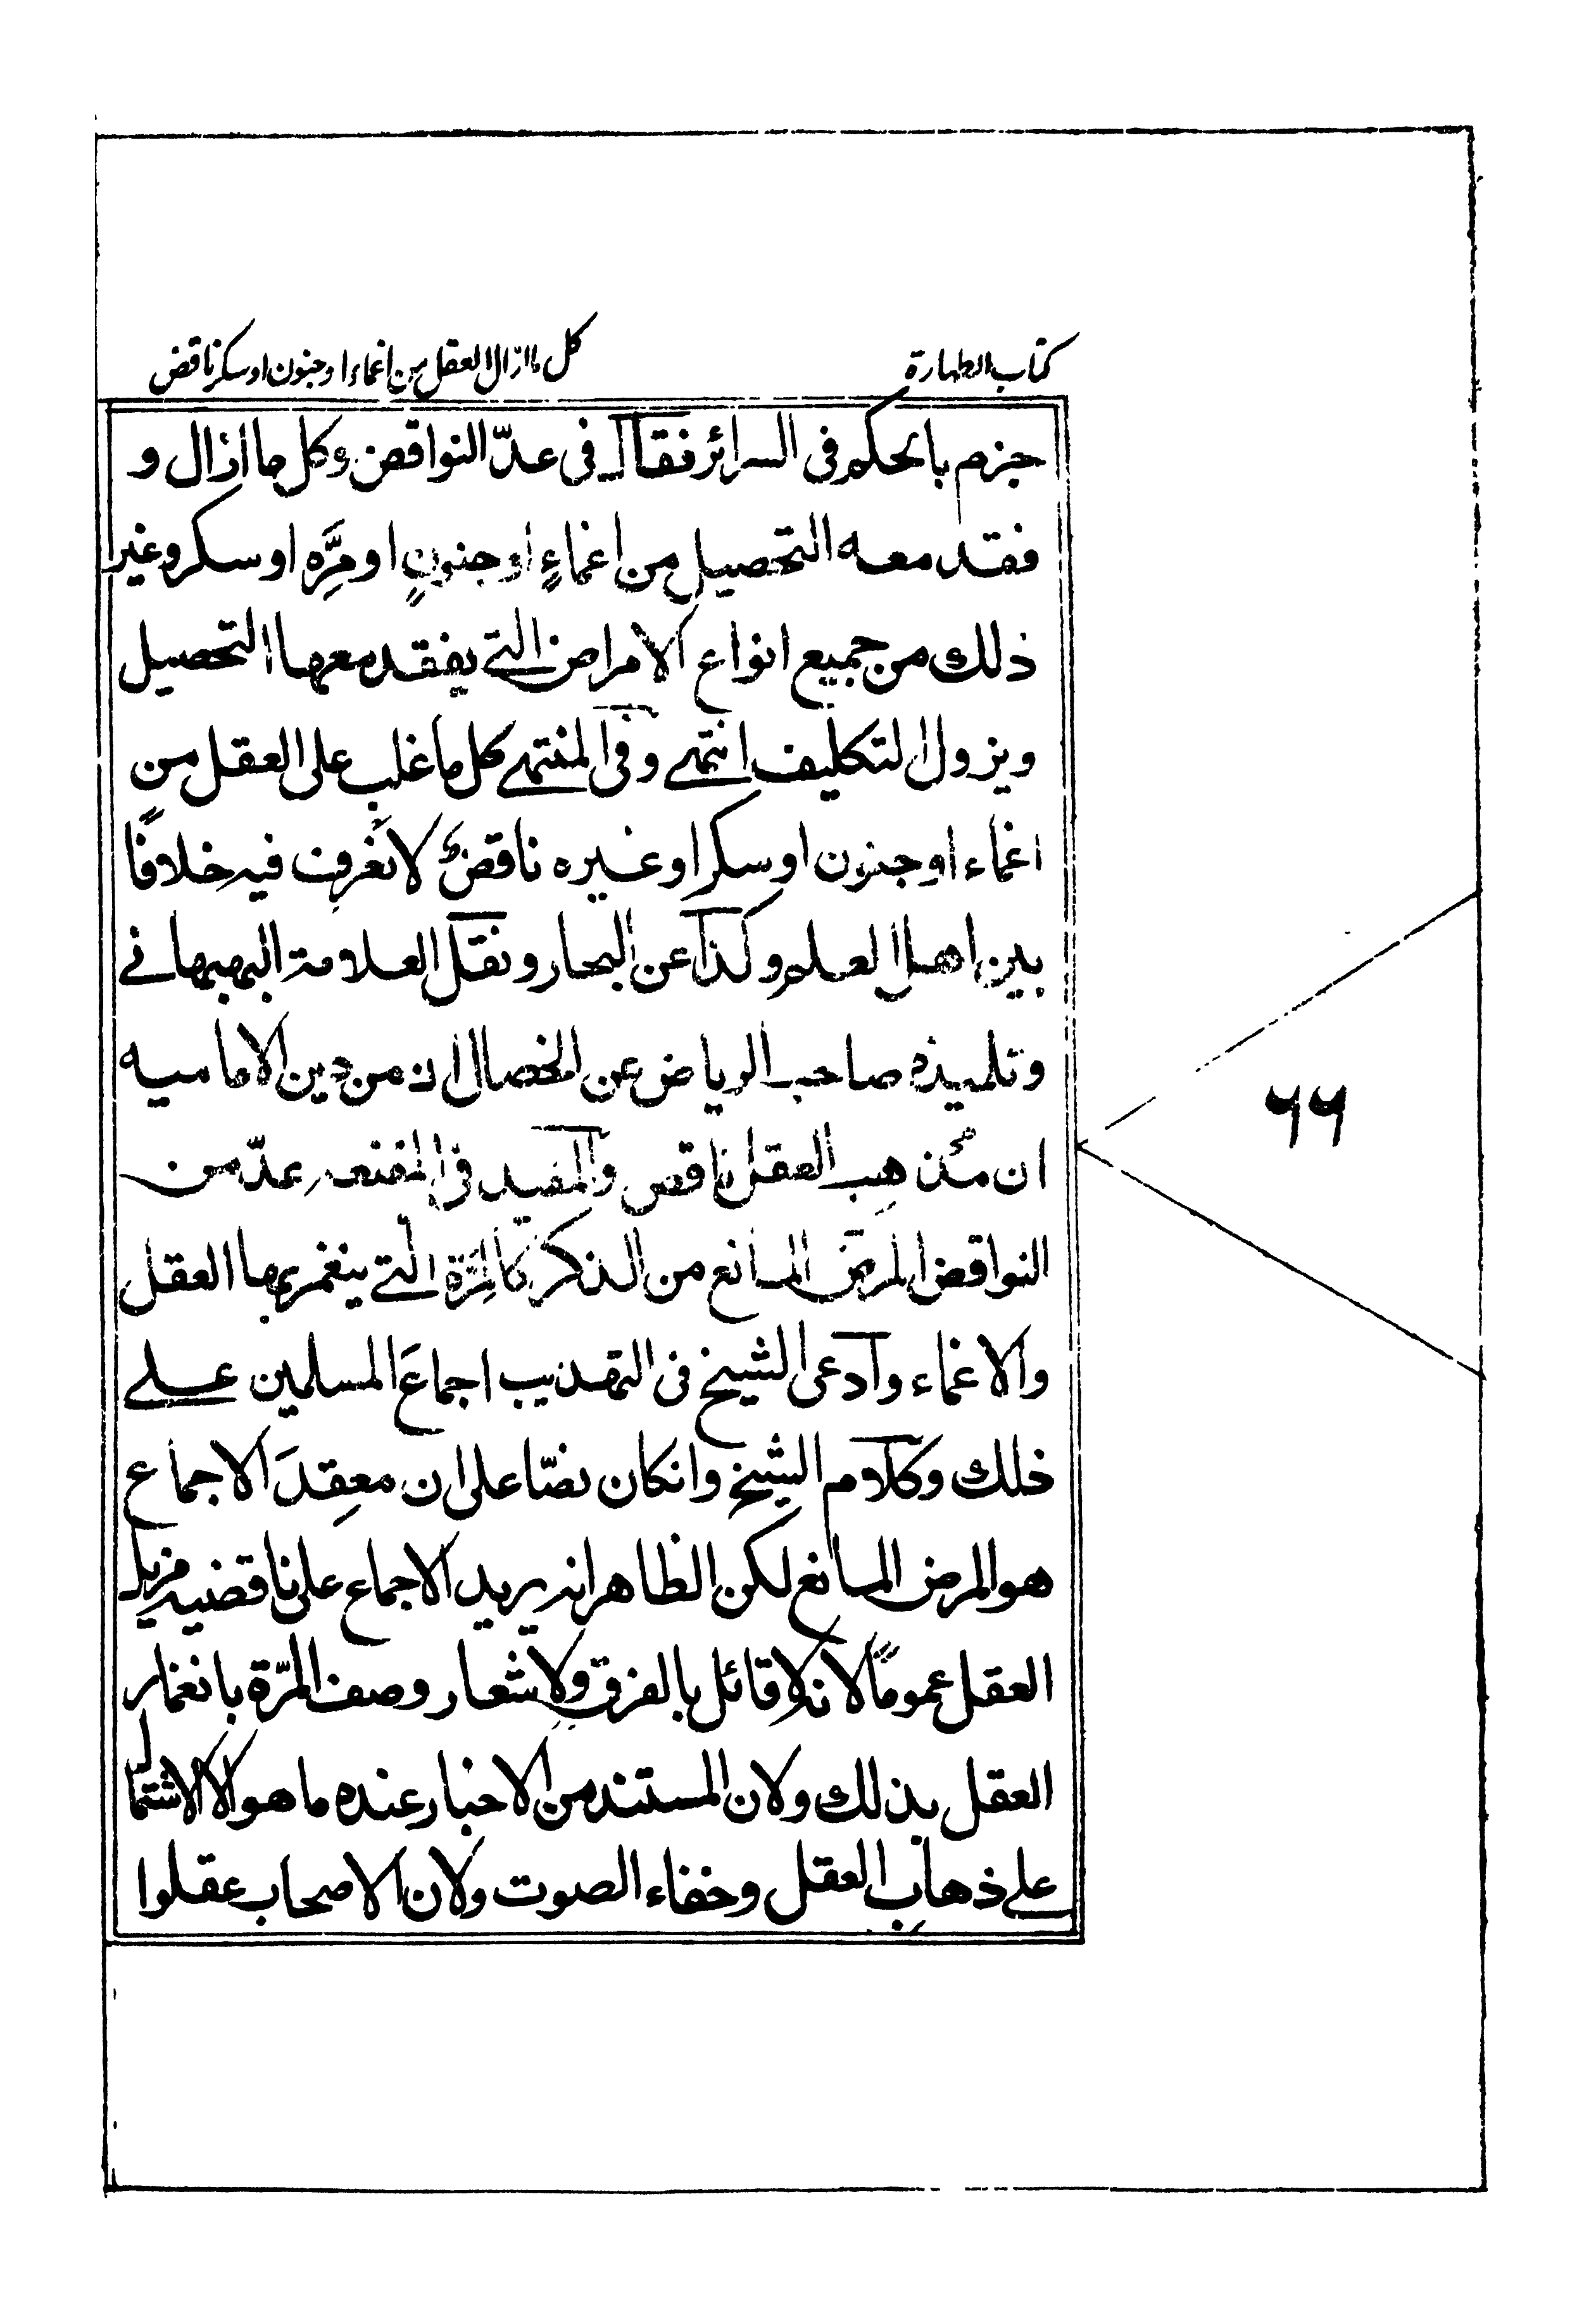 كتاب الطهارة
كل ما ازال العقل من اغماء او جنون او سكر ناقض
جزم بالحكم فى السرائر فقال فى عدّ النواقض وكل ما ازال و
فقد معه التحصيل من اغماءٍ او جنونٍ او مِرَّه او سكر وغير
ذلك من جميع انواع الامراض التے يفقد معها التحصيل
ويزول التكليف انتهے وفى المنتهے كل ما غلب على العقل من
اغماء او جنون او سكر او غيره ناقض لا نعرف فيه خلافًا
بين اهل العلم وكذا عن البحار ونقل العلامة البهبهانے
وتلميذه صاحب الرياض عن الخصال ان من دين الاماميه
ان مُذهِب العقل ناقض والمفيد فى المقنعه عدّ من
النواقض المرض المانع من الذكر كالمِرَّة التے ينغمر بها العقل
والاغماء وادعى الشيخ فى التهذيب اجماعَ المسلمين علے
ذلك وكلام الشيخ وانكان نصّا على ان معقِدَ الاجماع
هو المرض المانع لكن الظاهر انه يريد الاجماع على ناقضيه مزيل
العقل عمومًا لانه لا قائل بالفرق ولاشعار وصف المرّة بانغمار
العقل بذلك ولان المستند من الاخبار عنده ما هو الا لاشتمال
علے ذهاب العقل وخفاء الصوت ولان الاصحاب عقلوا
٦٦